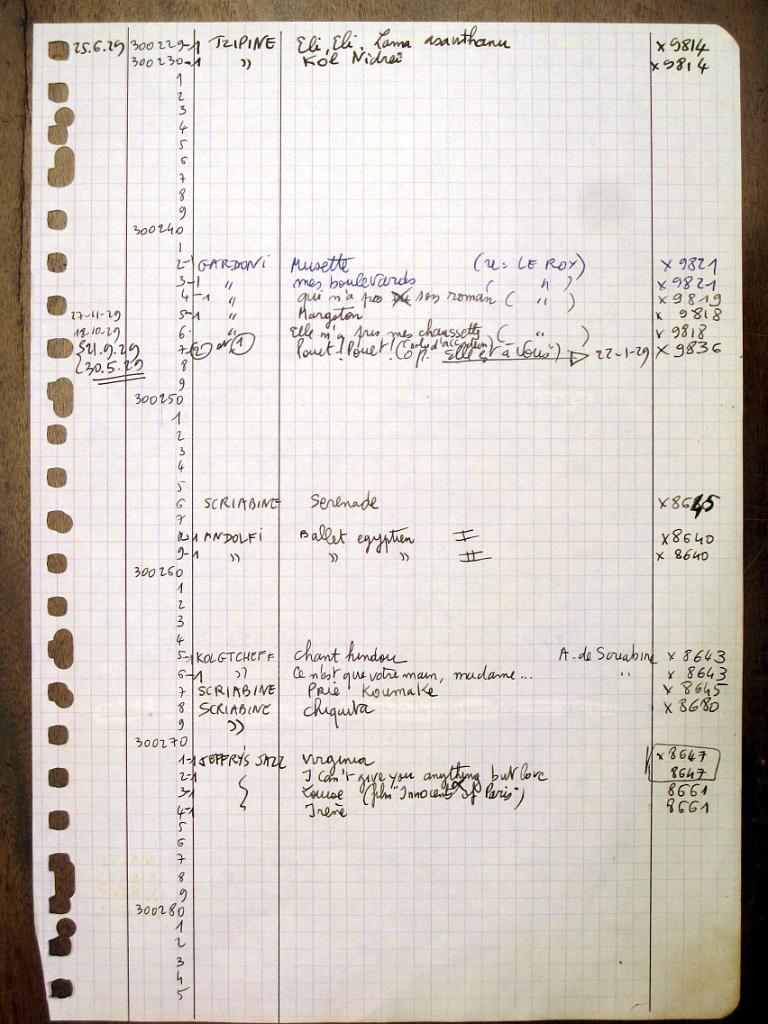 25.6.29 300229-1 TZIPINE Eli, Eli, Lama asavthanu x 9814
300230-1 " Kol Nidrei x 9814
1
2
3
4
5
6
7
8
9
300240
1
2-1 GARDONI Musette (r = LE ROY) x 9821
3-1 " mes boulevards ( " ) x 9821
4-1 " qui n'a pas son roman ( " ) x 9819
27-11-29 5-1 " Margoton x 9818
18.10-29 6 " Elle m'a pris mes chaussettes ( " ) x 9818
21.9.29 7 2 et 1 Pouet! Pouet! (op. "Elle est à vous") 22-1-29 x 9836
30.5.29 8
9
300250
1
2
3
4
5
6 SCRIABINE Serenade x 8645
7
8-1 ANDOLFI Ballet egyptien I x 8640
9-1 " " " II x 8640
300260
1
2
3
4
5-1 KOLGTCHEFF chant hindou A. de Scriabine x 8643
6-1 " Ce n'est que votre main, madame... " x 8643
7 SCRIABINE Prié Koumake x 8645
8 SCRIABINE chiquita x 8680
9 "
300270
1-1 JEFFRYS JAZZ Virginia x 8647
2-1 I can't give you anything but love 8647
3-1 Louise (film "Innocents of Paris") 8661
4-1 Irene 8661
5
6
7
8
9
300280
1
2
3
4
5